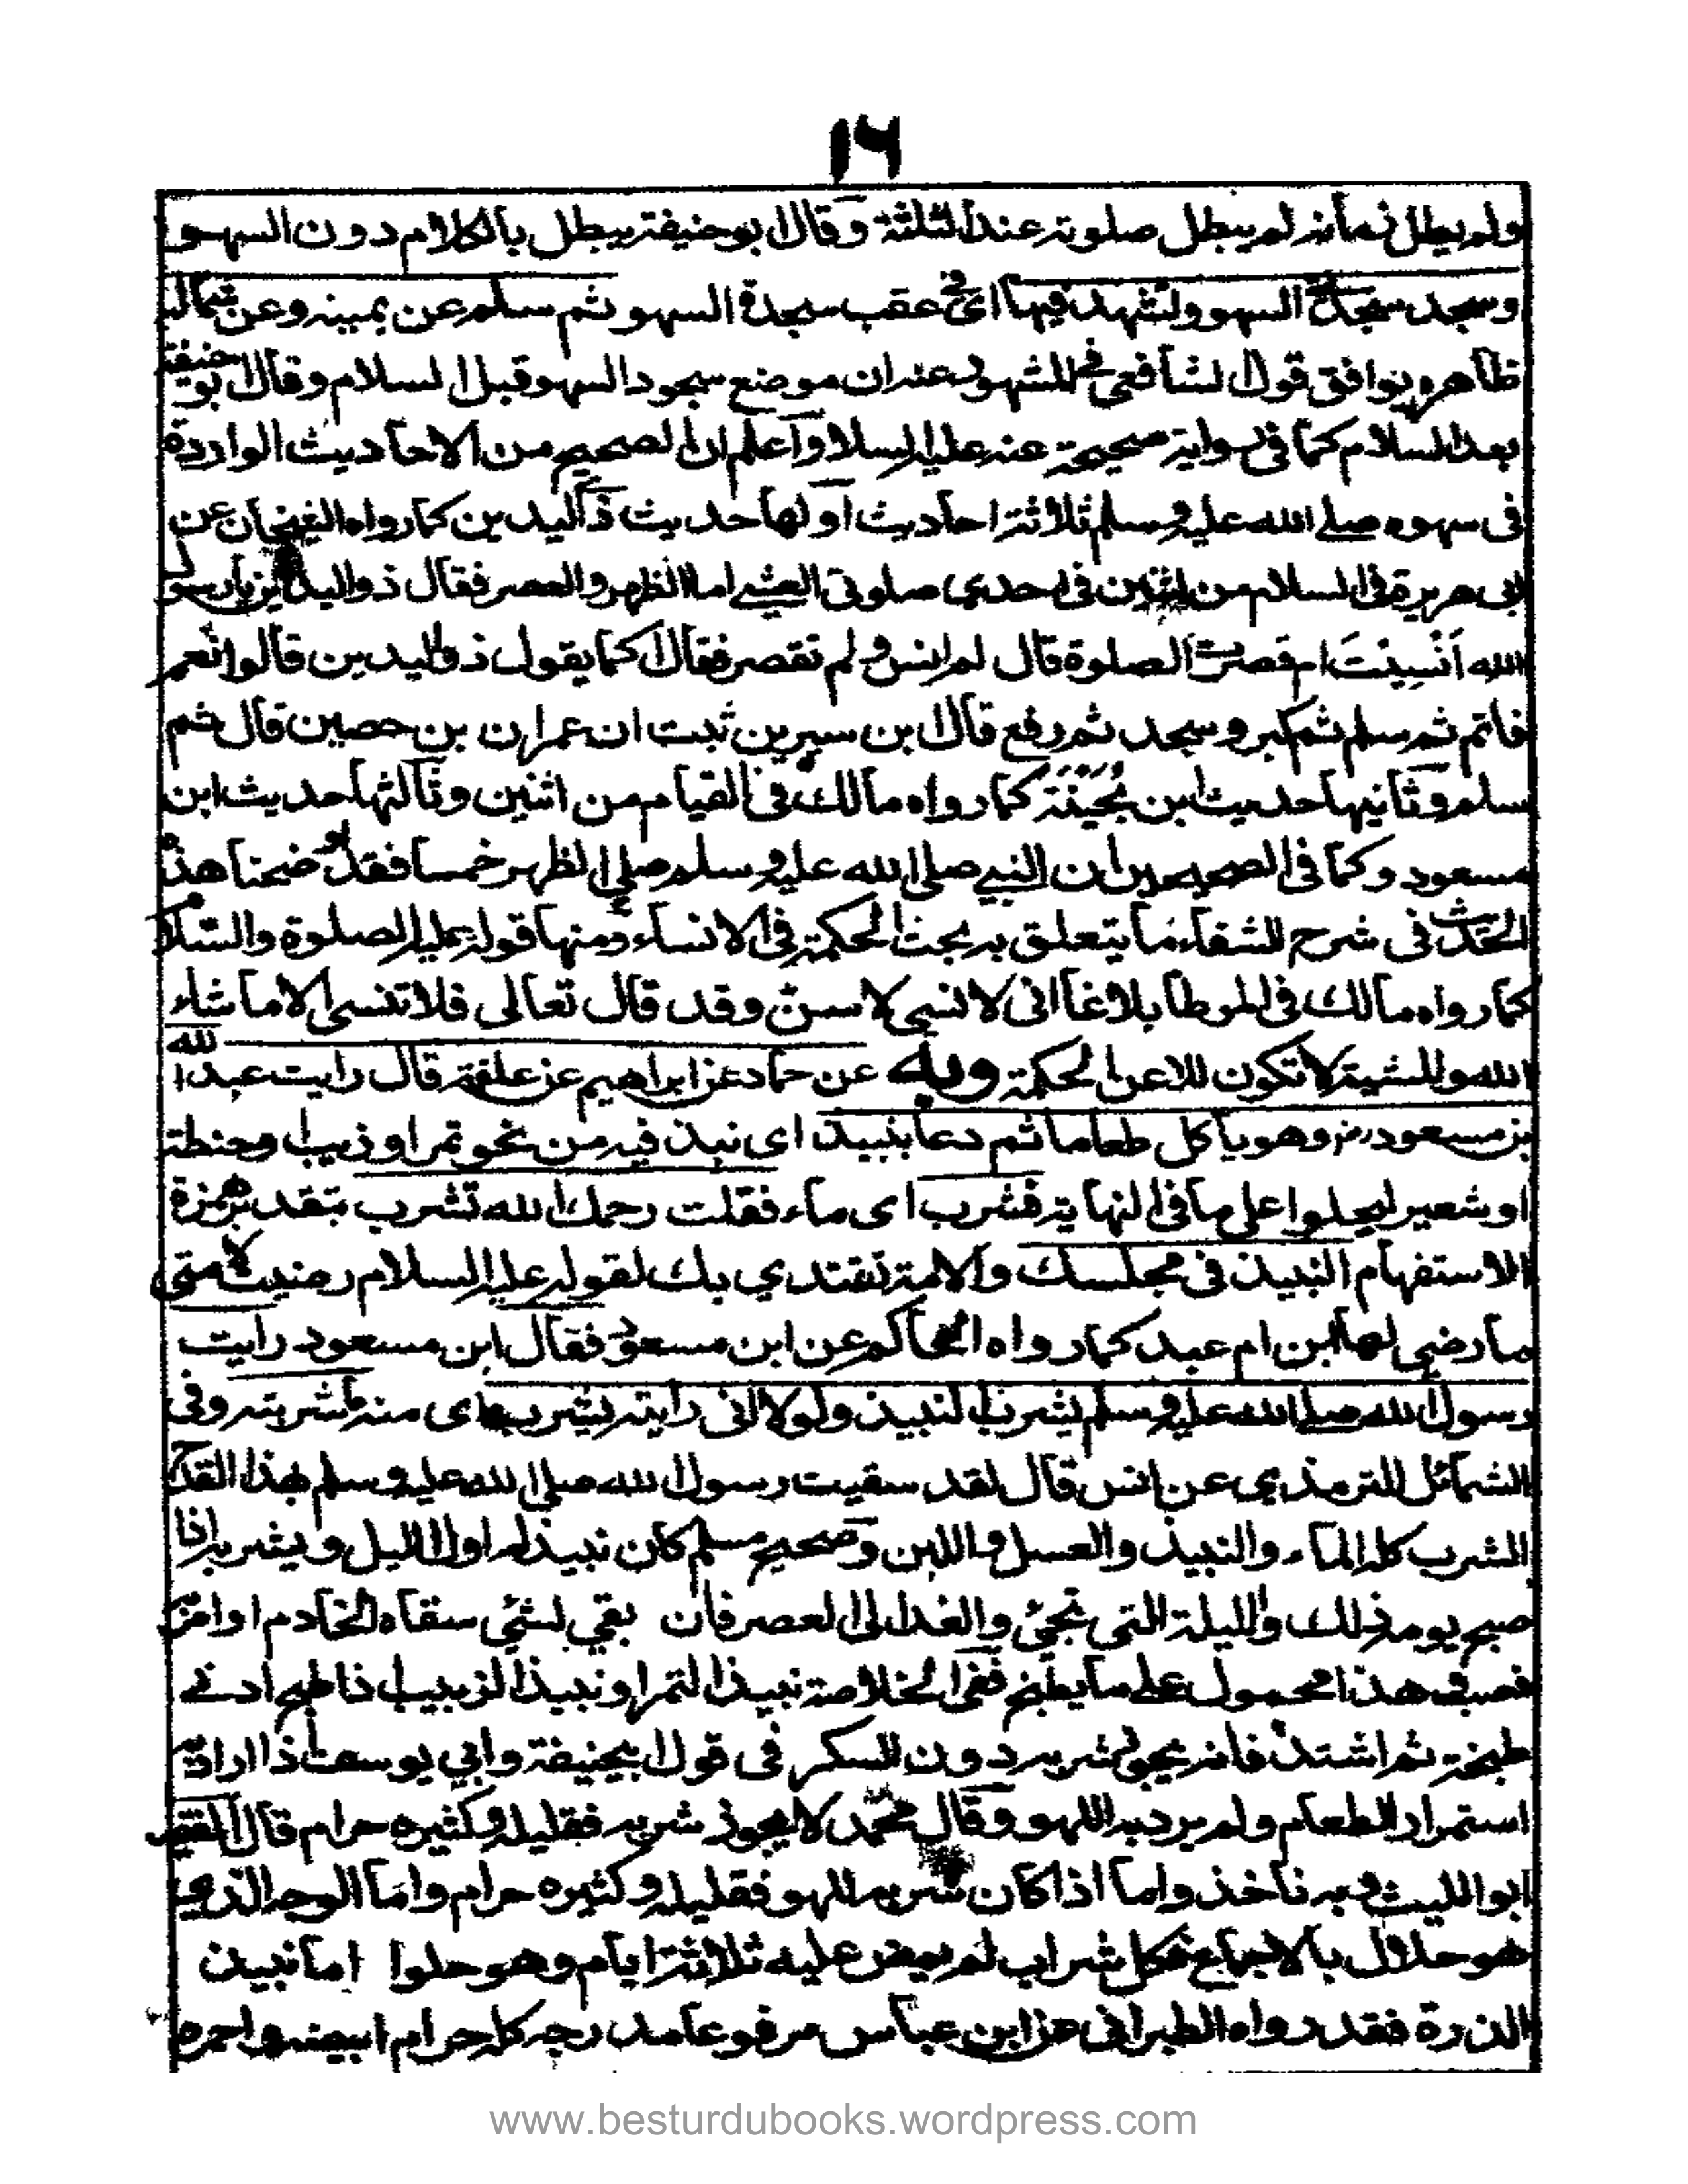 ١٦
ولم يطل زمانه لم يبطل صلوته عند الثلثة وقال ابو حنيفة يبطل بالكلام دون السهو
وسجد سجدتي السهو وتشهد فيها اى في عقب سجدة السهو ثم سلم عن يمينه وعن شماله
ظاهره يوافق قول الشافعى في المشهور عنه ان موضع سجود السهو قبل السلام وقال ابو حنيفة
بعد السلام كما فى رواية صحيحة عنه عليه السلام واعلم ان الصحيح من الاحاديث الواردة
فى سهوه صلى الله عليه وسلم ثلاثة احاديث اولها حديث ذى اليدين كما رواه الشيخان عن
ابى هريرة فى السلام من اثنين فى احدي صلوتى العشى اما الظهر والعصر فقال ذو اليدين يا رسول
الله أنسيت ام قصرت الصلوة قال لم انس ولم تقصر فقال كما يقول ذو اليدين قالوا نعم
فاتم ثم سلم ثم كبر وسجد ثم رفع قال ابن سيرين ثبت ان عمران بن حصين قال ثم
سلم وثانيها حديث ابن بُحَيْنَة كما رواه مالك فى القيام من اثنين وثالثها حديث ابن
مسعود وكما فى الصحيحين ان النبى صلى الله عليه وسلم صلى الظهر خمسا فقد وضحنا هذه
فى شرح الشفاء ما يتعلق به بحث الحكمة فى الانساء ومنها قوله عليه الصلوة والسلام
كما رواه مالك فى الموطا بلاغا انى لا نسى لاسن وقد قال تعالى فلا تنسى الا ما شاء
الله والمشية لا تكون الا عن الحكمة وبه عن حماد عن ابراهيم عن علقمة قال رايت عبد الله
بن مسعود رض وهو ياكل طعاما ثم دعا بنبيذ اى نبذ فيه من نحو تمر او زبيب او حنطة
او شعير ليحلوا على ما فى النهاية فشرب اى ماء فقلت رحمك الله تشرب بتقدير همزة
الاستفهام النبيذ فى مجلسك والامة تقتدي بك لقوله عليه السلام رضيت لامتى
ما رضى لها ابن ام عبد كما رواه الحاكم عن ابن مسعود فقال ابن مسعود رايت
رسول الله صلى الله عليه وسلم يشرب النبيذ ولولا انى رايته يشربه اى منه ما شربته وفى
الشمائل للترمذي عن انس قال لقد سقيت رسول الله صلى الله عليه وسلم بهذا القدح
الشرب كله الماء والنبيذ والعسل واللبن وصحيح مسلم كان نبيذ له اول الليل ويشربه اذا
صبح يومه ذلك والليلة التى تجئ والغد الى العصر فان بقى لشئ سقاه الخادم او امر
فصب هذا محمول على ما يطبخ ففى الخلاصة نبيذ التمر او نبيذ الزبيب اذا طبخ ادنى
طبخة ثم اشتد فانه يجوز شربه دون السكر فى قول ابى حنيفة وابي يوسف اذا اراد به
استمرار الطعام ولم يرد به اللهو وقال محمد لا يجوز شربه فقليله وكثيره حرام قال الفقيه
ابو الليث وبه ناخذ واما اذا كان شربه للهو فقليله وكثيره حرام واما الوجه الذى
هو حلال بالاجماع فكل شراب لم يمض عليه ثلاثة ايام وهو حلوا اما نبيذ
الذرة فقد رواه الطبرانى عن ابن عباس مرفوعا حرام ابيضه واحمره
www.besturdubooks.wordpress.com